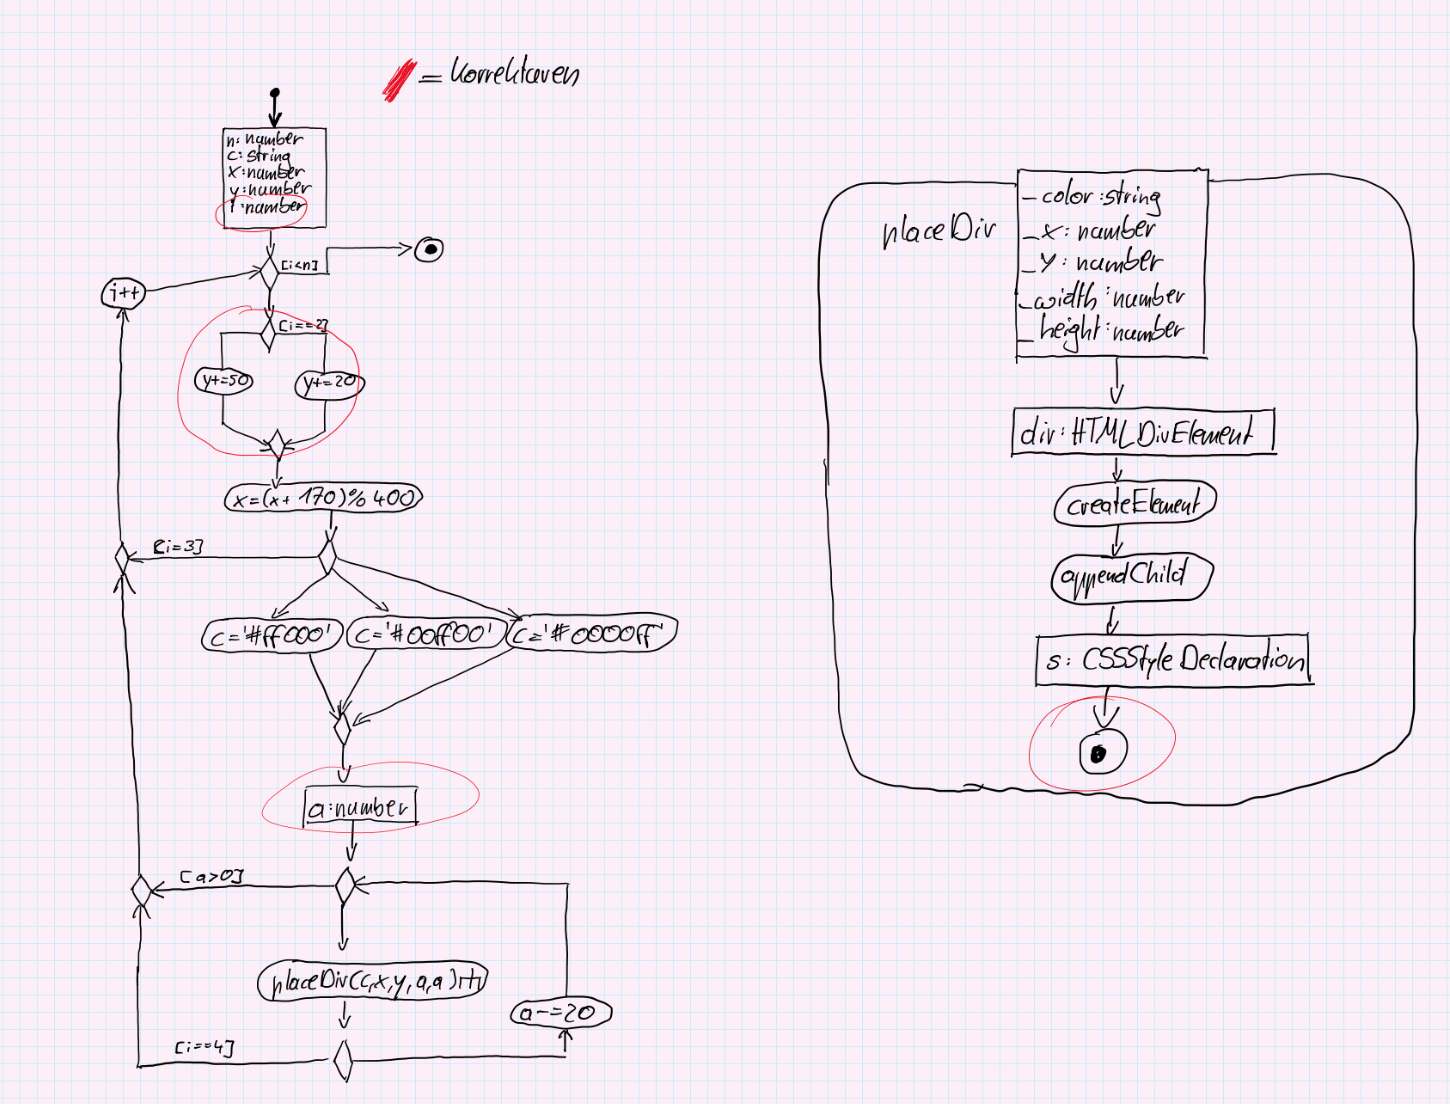 = Korrekturen
n: number
c: string
x: number
y: number
i: number
[i<n]
i++
[i==2]
y+=50
y+=20
x=(x+ 170)% 400
[i=3]
c='#ff000'
c='#00ff00'
c='#0000ff'
a:number
[a>0]
placeDiv(c,x,y,a,a)
a-=20
[i==4]
placeDiv
_color:string
_x: number
_y: number
_width: number
_height: number
div: HTMLDivElement
createElement
appendChild
s: CSSStyleDeclaration